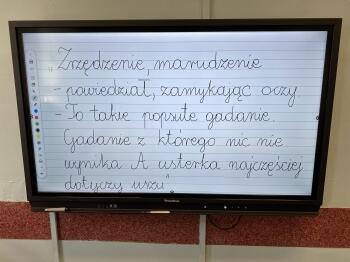 „Zrzędzenie, marudzenie
- powiedział, zamykając oczy
- To takie popsute gadanie.
Gadanie z którego nic nie
wynika A usterka najczęściej
dotyczy uszu"